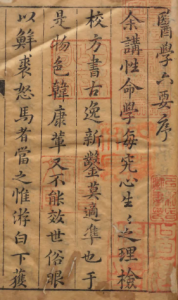 醫學六要序
余講性命學每究心生之理檢
校方書古逸新鑿莫適準也于
是物色韓康輩又不能玆世俗眼
以鮮裘怒馬者當之惟游白下獲